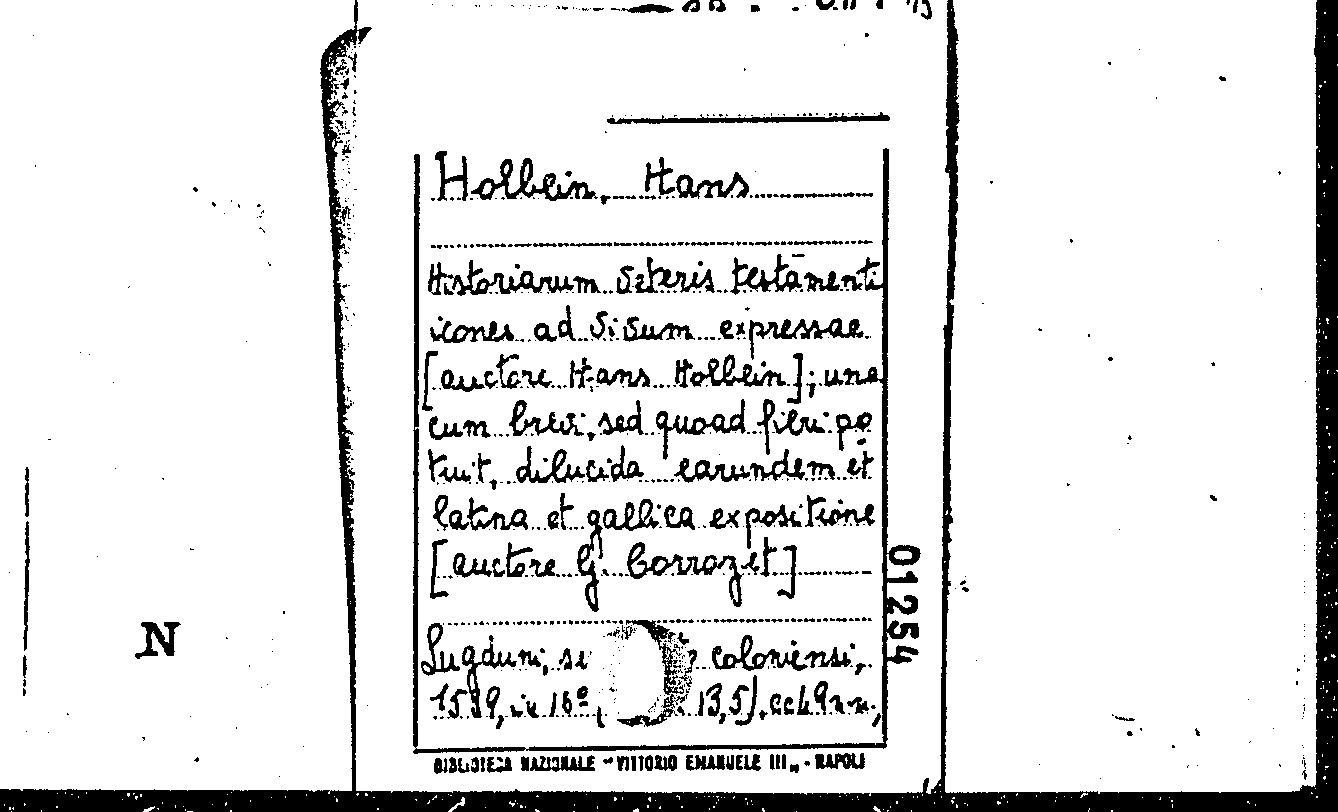 Holbein, Hans
Historiarum veteris testamenti
icones ad vivum expressae
[auctore Hans Holbein]; una
cum brevi, sed quoad fieri po
tuit, dilucida earundem et
latina et gallica expositione
[auctore G. Corrozet]
Lugduni, coloniensi,
1539, in 16º, 13,5). cc 49 n.n.,
BIBLIOTECA NAZIONALE "VITTORIO EMANUELE III„ - NAPOLI
01254
N